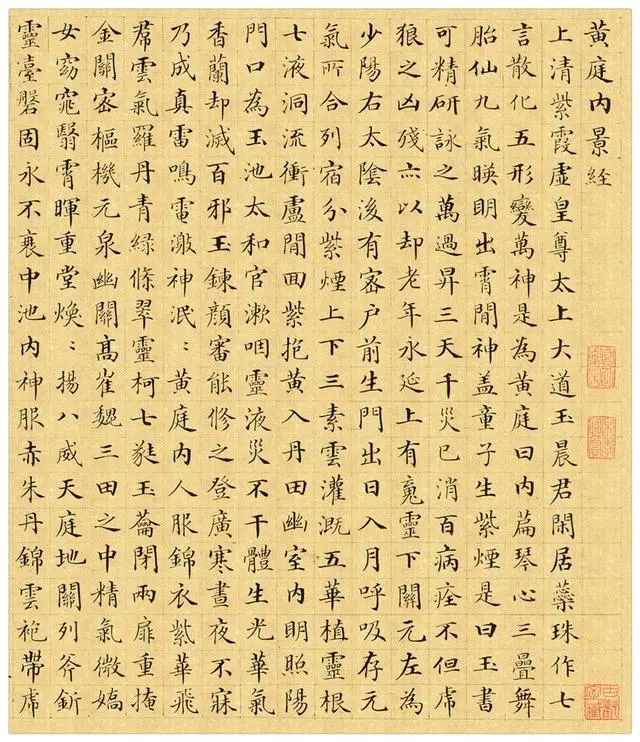 黄庭内景経
上清紫霞虛皇尊太上大道玉晨君閑居蘂珠作七
言散化五形變萬神是為黄庭曰内萹琴心三疊舞
胎仙九氣暎明出霄間神盖童子生紫煙是曰玉書
可精研詠之萬過昇三天千災已消百病痊不但虎
狼之凶殘亦以却老年永延上有䰟靈下關元左為
少陽右太陰後有密户前生門出日入月呼吸存元
氣所合列宿分紫煙上下三素雲灌溉五華植靈根
七液洞流衝盧間回紫抱黄入丹田幽室内明照陽
門口為玉池太和官漱咽靈液災不干體生光華氣
香蘭却滅百邪玉鍊顔審能修之登廣寒晝夜不寐
乃成真雷鳴電激神泯〻黄庭内人服錦衣紫華飛
帬雲氣羅丹青綠條翠靈柯七蕤玉蘥閉兩扉重掩
金關密樞機元泉幽關高崔巍三田之中精氣微嬌
女窈窕翳霄暉重堂煥〻揚八威天庭地關列斧釿
靈臺磐固永不衰中池内神服赤朱丹錦雲袍帶虎